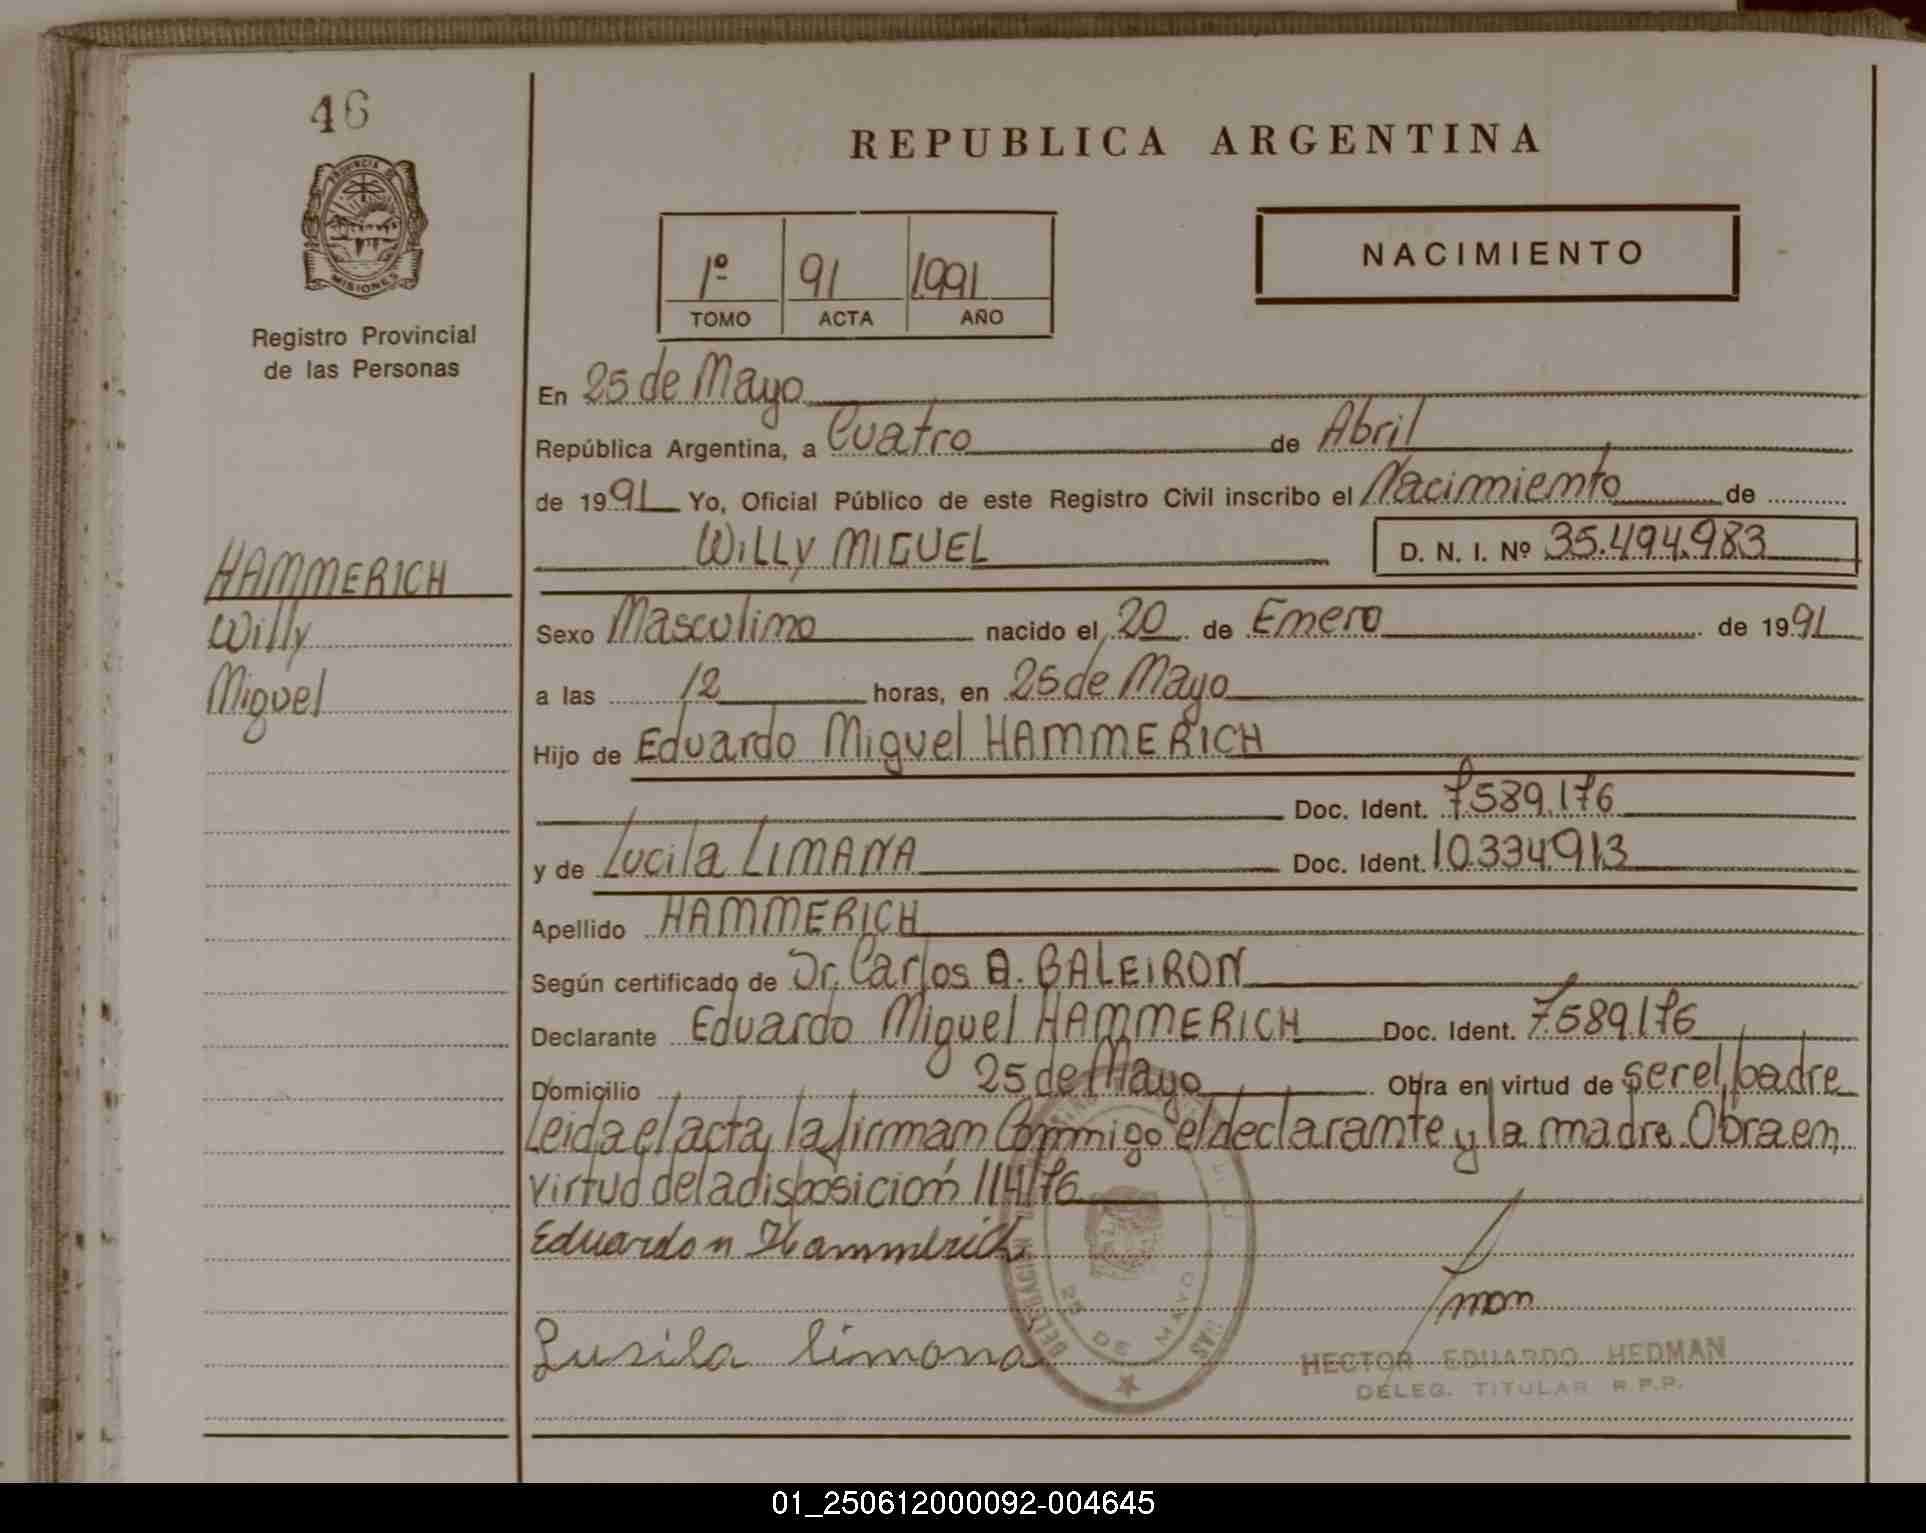 46
PROVINCIA DE
MISIONES
Registro Provincial
de las Personas
HAMMERICH
Willy
Miguel
REPUBLICA ARGENTINA
1º 91 1991
TOMO ACTA AÑO
NACIMIENTO
En 25 de Mayo
República Argentina, a Cuatro de Abril
de 1991 Yo, Oficial Público de este Registro Civil inscribo el Nacimiento de
WILLY MIGUEL D. N. I. Nº 35.494.983
Sexo Masculino nacido el 20 de Enero de 1991
a las 12 horas, en 25 de Mayo
Hijo de Eduardo Miguel HAMMERICH
Doc. Ident. 7.589.176
y de Lucila LIMANA Doc. Ident. 10.334.913
Apellido HAMMERICH
Según certificado de Dr. Carlos A. BALEIRON
Declarante Eduardo Miguel HAMMERICH Doc. Ident. 7.589.176
Domicilio 25 de Mayo Obra en virtud de ser el padre
Leida el acta, la firman Conmigo el declarante y la madre Obra en
virtud de la disposición 114/76
Eduardo M Hammerich
Lusila limana
25 DE MAYO
HECTOR EDUARDO HEDMAN
DELEG. TITULAR R.P.P.
01_250612000092-004645